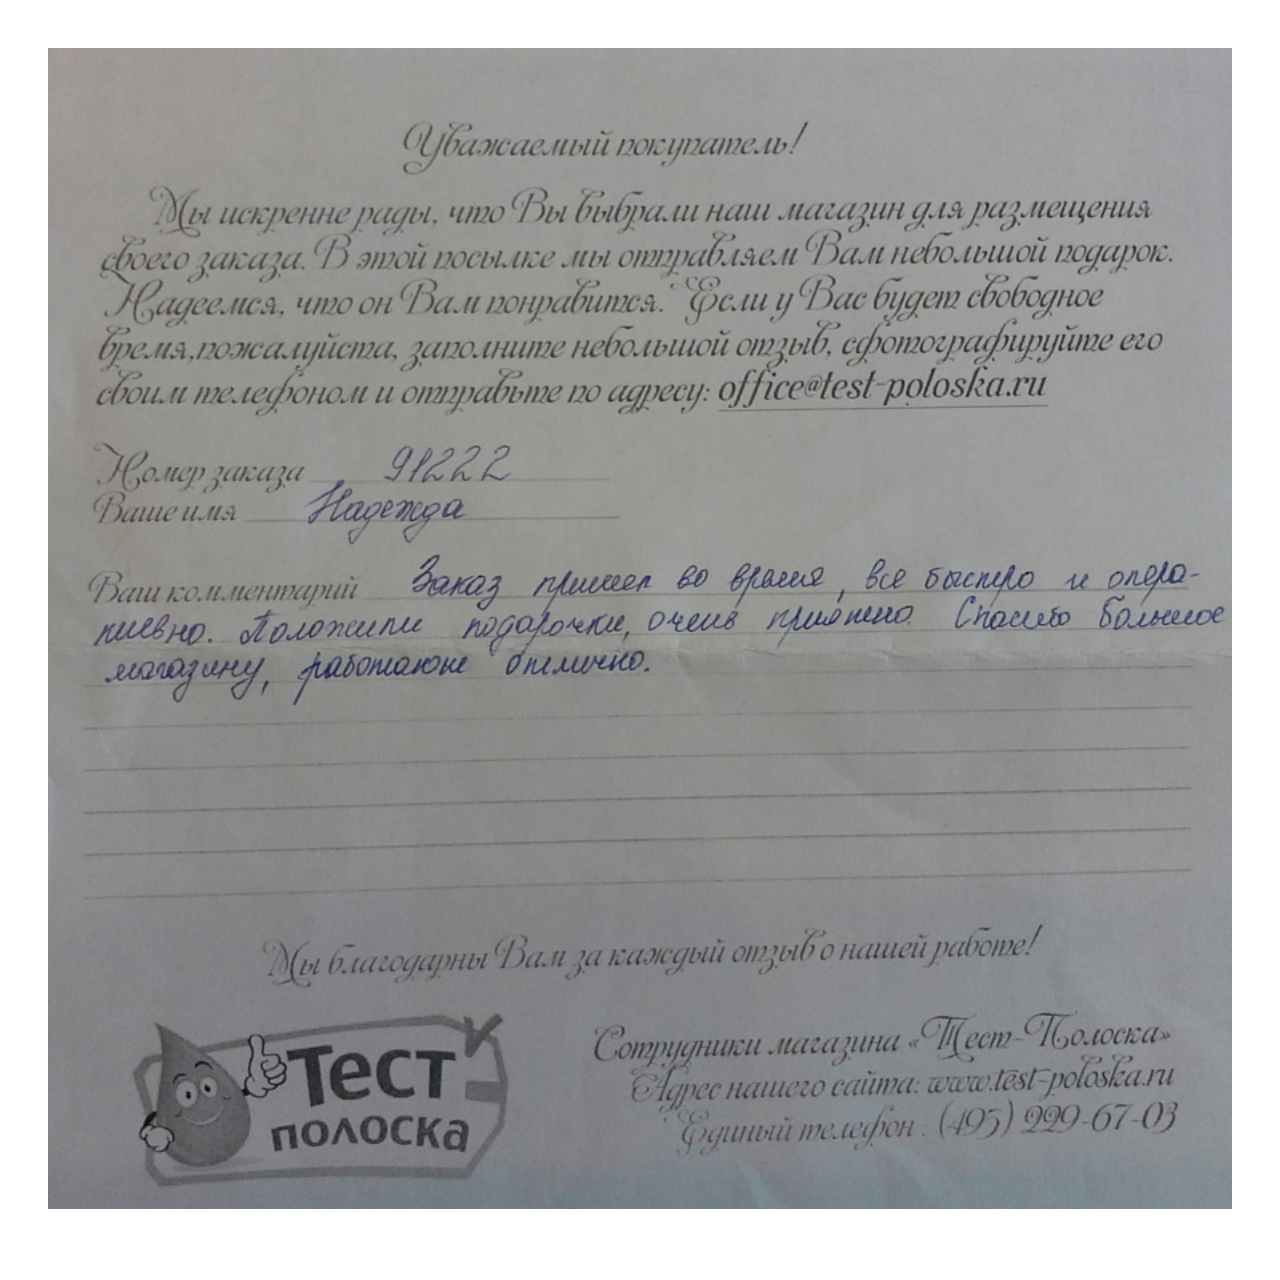 Уважаемый покупатель!
Мы искренне рады, что Вы выбрали наш магазин для размещения
своего заказа. В этой посылке мы отправляем Вам небольшой подарок.
Надеемся, что он Вам понравится. Если у Вас будет свободное
время,пожалуйста, заполните небольшой отзыв, сфотографируйте его
своим телефоном и отправьте по адресу: office@test-poloska.ru
Номер заказа 91222
Ваше имя Надежда
Ваш комментарий Заказ пришел во время, все быстро и опера-
тивно. Положили подарочки, очень приятно. Спасибо большое
магазину, работают отлично.
Мы благодарны Вам за каждый отзыв о нашей работе!
Тест
полоска
Сотрудники магазина «Тест-Полоска»
Адрес нашего сайта: www.test-poloska.ru
Единый телефон : (495) 229-67-03